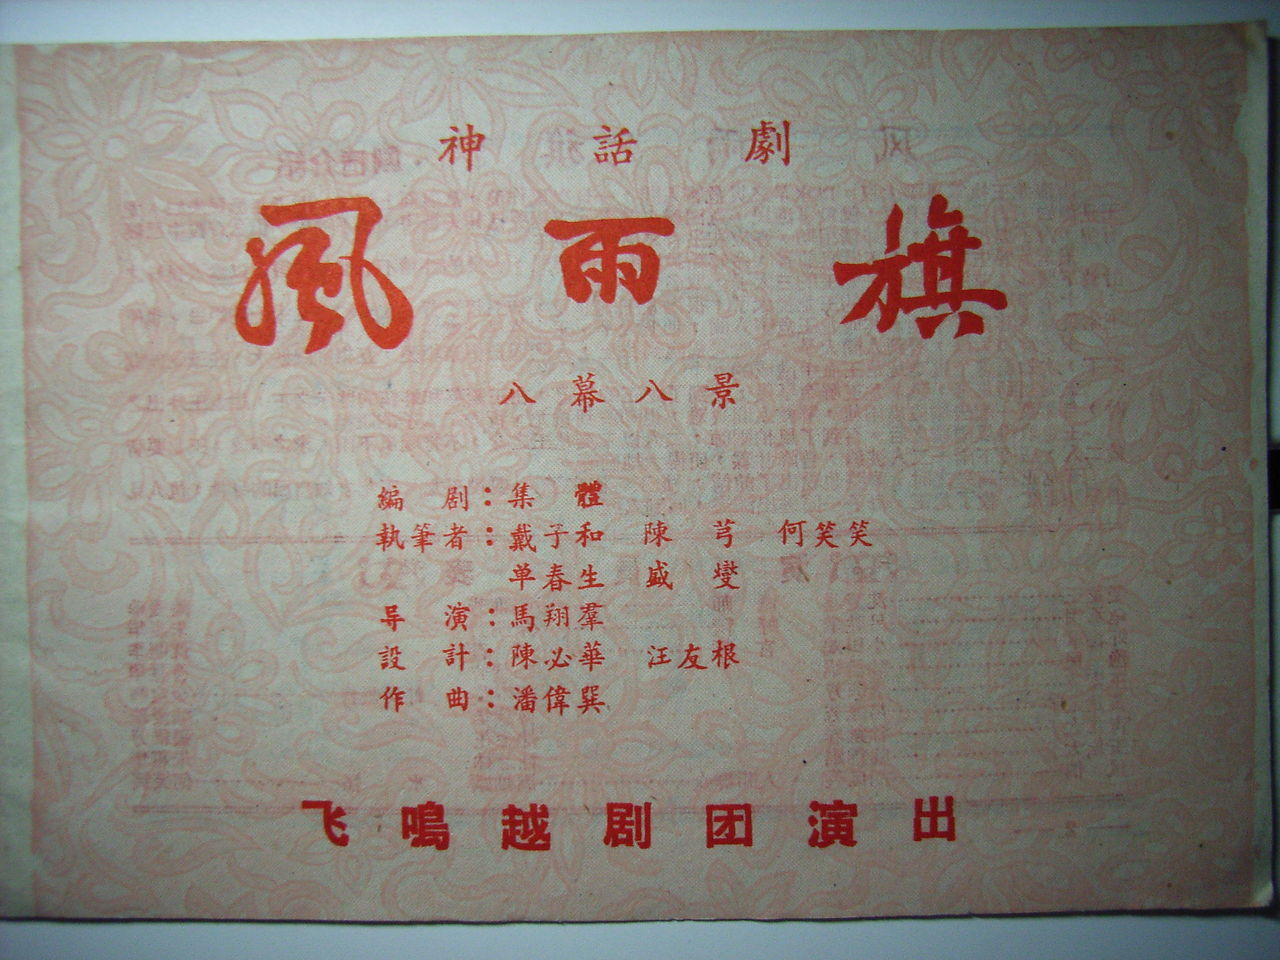 神話劇
風雨旗
八幕八景
編剧：集體
執筆者：戴子和 陳芎 何笑笑
单春生 盛燮
导演：馬翔羣
設計：陳必華 汪友根
作曲：潘偉巽
飞鳴越剧团演出